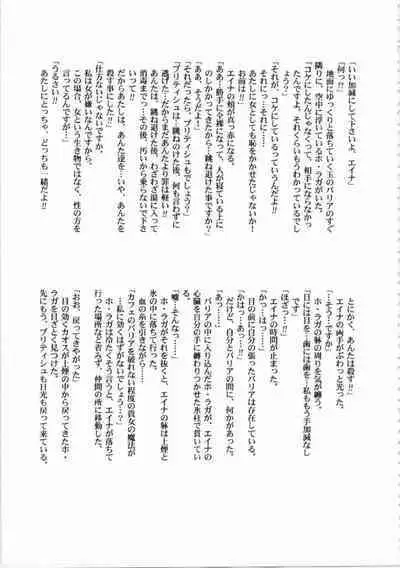 「いい加減にして下さいよ、エイナ」
「何っ!!」
　地面にゆっくりと落ちていく玉のバリアのすぐ
隣りに、空中に浮いているホ・ラガがいた。
「コケにしたんじゃなくって、相手にしなかっ
たんですよ。それくらいもうわかっているでし
ょう？」
「それが、コケにしているっていうんだよ!!
それに…っそれに…!!
　あたしに女としても恥をかかせたじゃないか!
お前は!!」
　エイナの頬が真っ赤になる。
「ああ…勝手に全裸になって、人が寝ている上に
のしかかってきたから…跳ね退けた事ですか？」
「ああ、そうだよ!!」
「それだったら、ブリティシュもでしょう？」
「ブリティシュは…跳ねのけた後、何も言わずに
逃げた…だからまだあんたより罪は軽い!!
　あんたは、跳ね退けた後、わざわざ湯に入って
消毒までっ…その後、汚いから乗らないで下さ
いって…言いやがった……!!
　だからあたしは、あんた達を…いや、あんたを
殺す事にした!!」
「仕方ないじゃないですか。
　私は女が嫌いなんですから。
　この場合、女という生き物ではなく、性の方を
言ってるんですが…」
「うるさい!!
　あたしにとっちゃ、どっちも一緒だよ!!
　とにかく、あんたは殺す!!」
　エイナの両手がぶわっと光った。
「…そうですか」
　ホ・ラガの躰の周りを気が纏う。
「目には目を…歯には歯を…私ももう手加減なし
です」
「ほざっ…!!」
　エイナの時間が止まった。
「かっ……はっ……」
　目の前に自分の張ったバリアは存在している。
「かは……あっ……!!」
　だけど、自分とバリアの間に、何かがあった。
「あっ……」
　バリアの中に入り込んだホ・ラガが、エイナの
心臓を自分の手に纏わりつかせた氷柱で貫いてい
る。
「嘘…そんなっ……」
　ホ・ラガがそれを抜くと、エイナの躰は土煙と
氷の中に落ちて行った。
　血の糸を引きながら……
「カフェのバリアを破れない程度の貴女の魔法が
…私に効くはずがないでしょう…？」
　ホ・ラガは冷たくそう言うと、エイナが落ちて
行った場所など省みず、仲間の所に移動した。
「おお、戻ってきやがった」
　目の効くカオスが土煙の中から戻って来たホ・
ラガを目ざとく見つけた。
　先にもう、ブリティシュも日光も戻ってきてい
る。